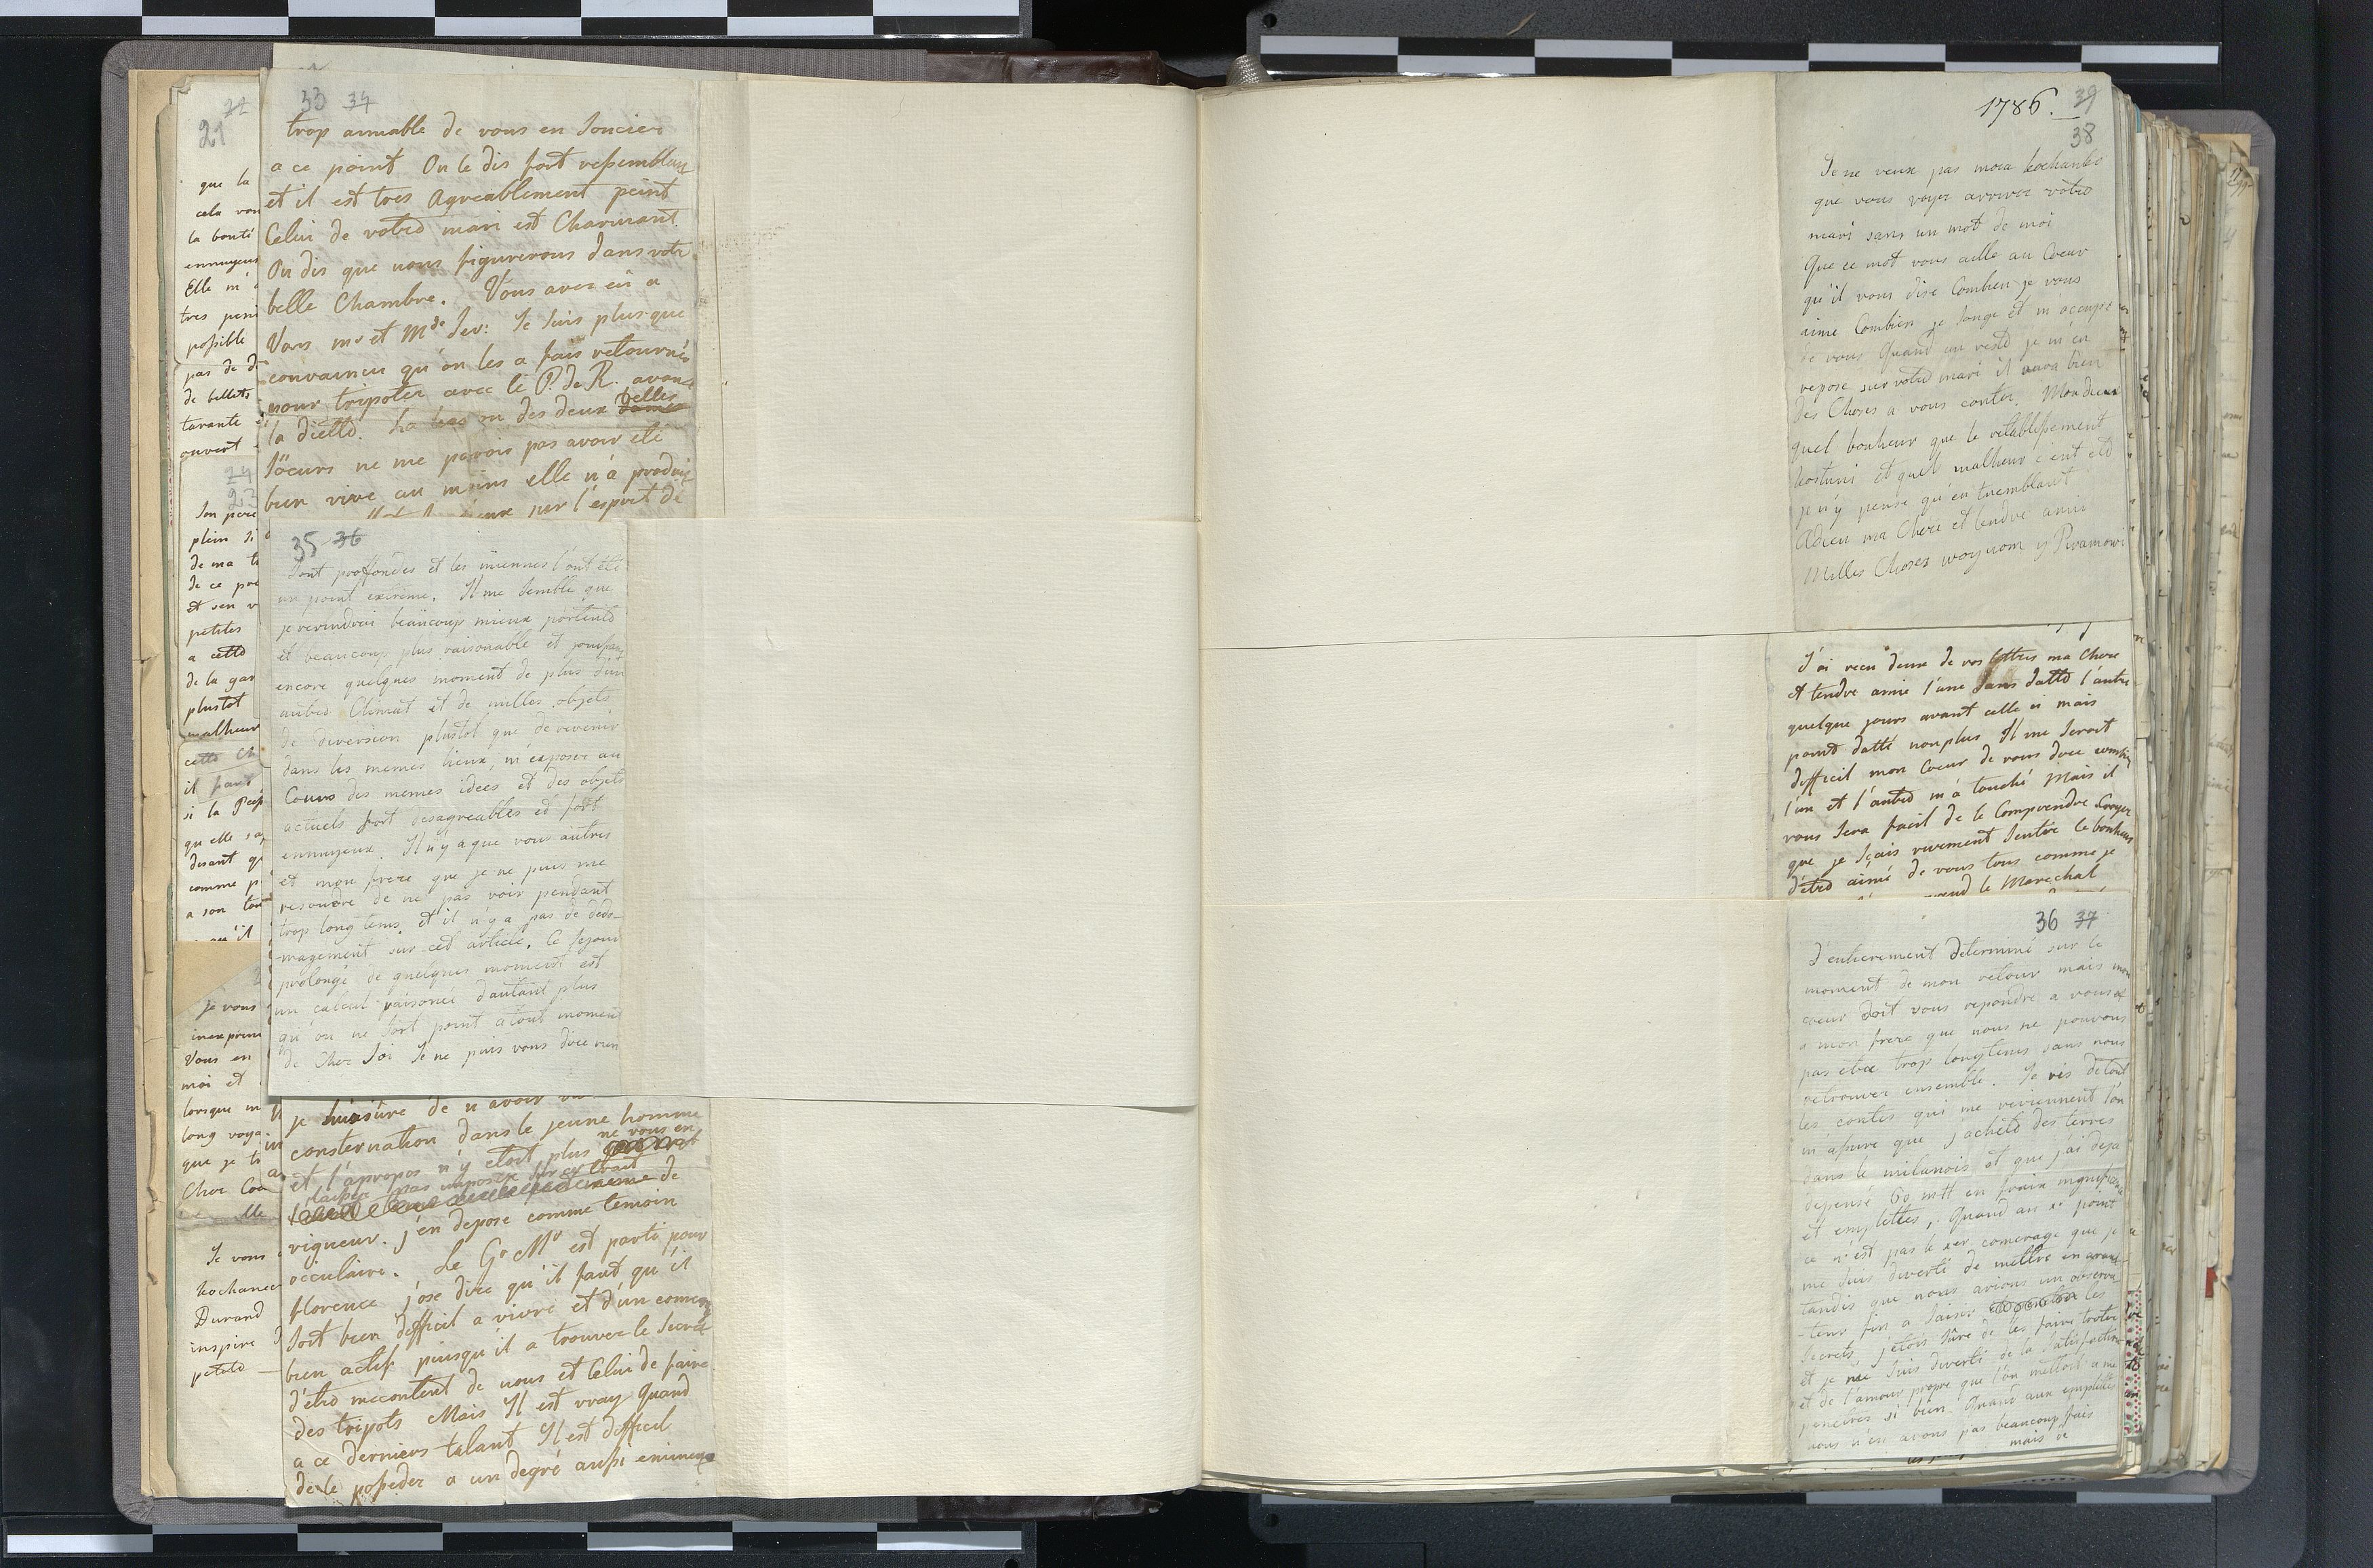 21 22
que la
cela vou
la bonté
ennuyeus
Elle m'
tres peni
possible
pas de d
de billets
tarante
ouvert
24
23
Son pere
plein Si
de ma t
de ce po
et sen v
petites
a cette
de la gar
plustot
malheur
cette Ch
il faut
si la Prép
qu elle sa
disant q
comme p
a son tou
qu'il
je vous
inexprim
Vous en
moi et
lorsque m
long voya
que je ti
Cher Coe
elle
Je vous
kochanec
Durand
inspire
petite
33 34
trop aimable de vous en Soucier
a ce point On le dis fort ressemblant
et il est tres Agreablement peint
Celui de votre mari est Charmant
On dis que nous figurerons dans votr
belle Chambre. Vous avez eû a
Vars mr et Mde Sev: Je Suis plusque
convaincu qu'on les a fais retourner
pour tripoter avec le P. de R. avant
la diette. La des deux belles
Soeurs ne me parois pas avoir été
bien vive au moins elle n'a produit
sur l'esprit de
35 36
Sont proffondes et les miennes l'ont été
un point extreme. Il me Semble que
je reviendrai beaucoup mieux portente
et beaucoup plus raisonable et
encore quelques moment de plus d'un
autre Climat et de milles objets
de diversion plustot que de revenir
dans les memes lieux, m'exposer au
Cours des memes idées et des objets
actuels fort desagreables et fort
ennuyeux. Il n'y a que vous autres
et mon frere que je ne puis me
resoudre de ne pas voir pendant
trop long tems, et il n'y a pas de dedo-
-magement sur cet article. Ce Sejour
prolongé de quelques moment est
un calcul raisonné dautant plus
qu'on ne Sort point atout moment
de Chez Soi Je ne puis vous dire rien
je m'assure de n avoir
consternation dans le jeune homme
et l'apropos n'y etoit plus ne vous en
laissez pas imposer Sur ce trait
de
vigueur. j'en depose comme temoin
occulaire. Le Gr Mr est parti pour
florence j'ose dire qu'il faut qu'il
Soit bien difficil a vivre et d'un comera
bien actif puisqu'il a trouver le Secret
d'etre mecontent de nous et Celui de faire
des tripots Mais Il est vray Quand
a ce derniers talant Il est difficil
de le posseder a un degré aussi eminent
1786. 39
38
Je ne veux pas moia kochanko
que vous voyez arriver vôtre
mari sans un mot de moi
Que ce mot vous aille au Coeur
qu'il vous dise Combien je vous
aime Combien je Songe et m'occupe
de vous Quand au reste je m'en
repose sur votre mari il aura bien
des Choses a vous conter. Mon dieu
quel bonheur que le retablissement
kostuni et quel malheur c'eut eté
je n'y pense qu'en tremblant
Adieu ma Chere et tendre amie
Milles Choses woynom y Piramowi
J'ai recu deux de vos lettres ma Chere
et tendre amie l'une Sans datte l'autre
quelque jours avant celle ci mais
point datté nonplus Il me Seroit
difficil mon Coeur de vous dire combien
l'un et l'autre m'a touché Mais il
vous Sera facil de le Comprendre Soyez
que je Sçais vivement Sentir le bonheur
d'etre aimé de vous tous comme je
le Marechal
36 37
d'entierement determiné sur le
moment de mon retour mais mon
coeur doit vous repondre a vous et
a mon frere que nous ne pouvons
pas etre trop longtems sans nous
retrouver ensemble. Je ris de tout
les contes qui me reviennent l'on
m'assure que j'achete des terres
dans le milanois et que j'ai deja
depensé 60 mtt en fraix
et emplettes, Quand au 1r point
ce n'est pas le 1er comerage que je
me Suis diverti de mettre en avant
tandis que nous avions un observa
-teur fin a Saisir les
Secrets, j'etois Sûre de les faire trotter
et je me Suis diverti de la Satisfaction
et de l'amour propre que l'on mettoit a me
penetrer si bien. Quand aux emplettes
nous n'en avons pas beaucoup fais
mais